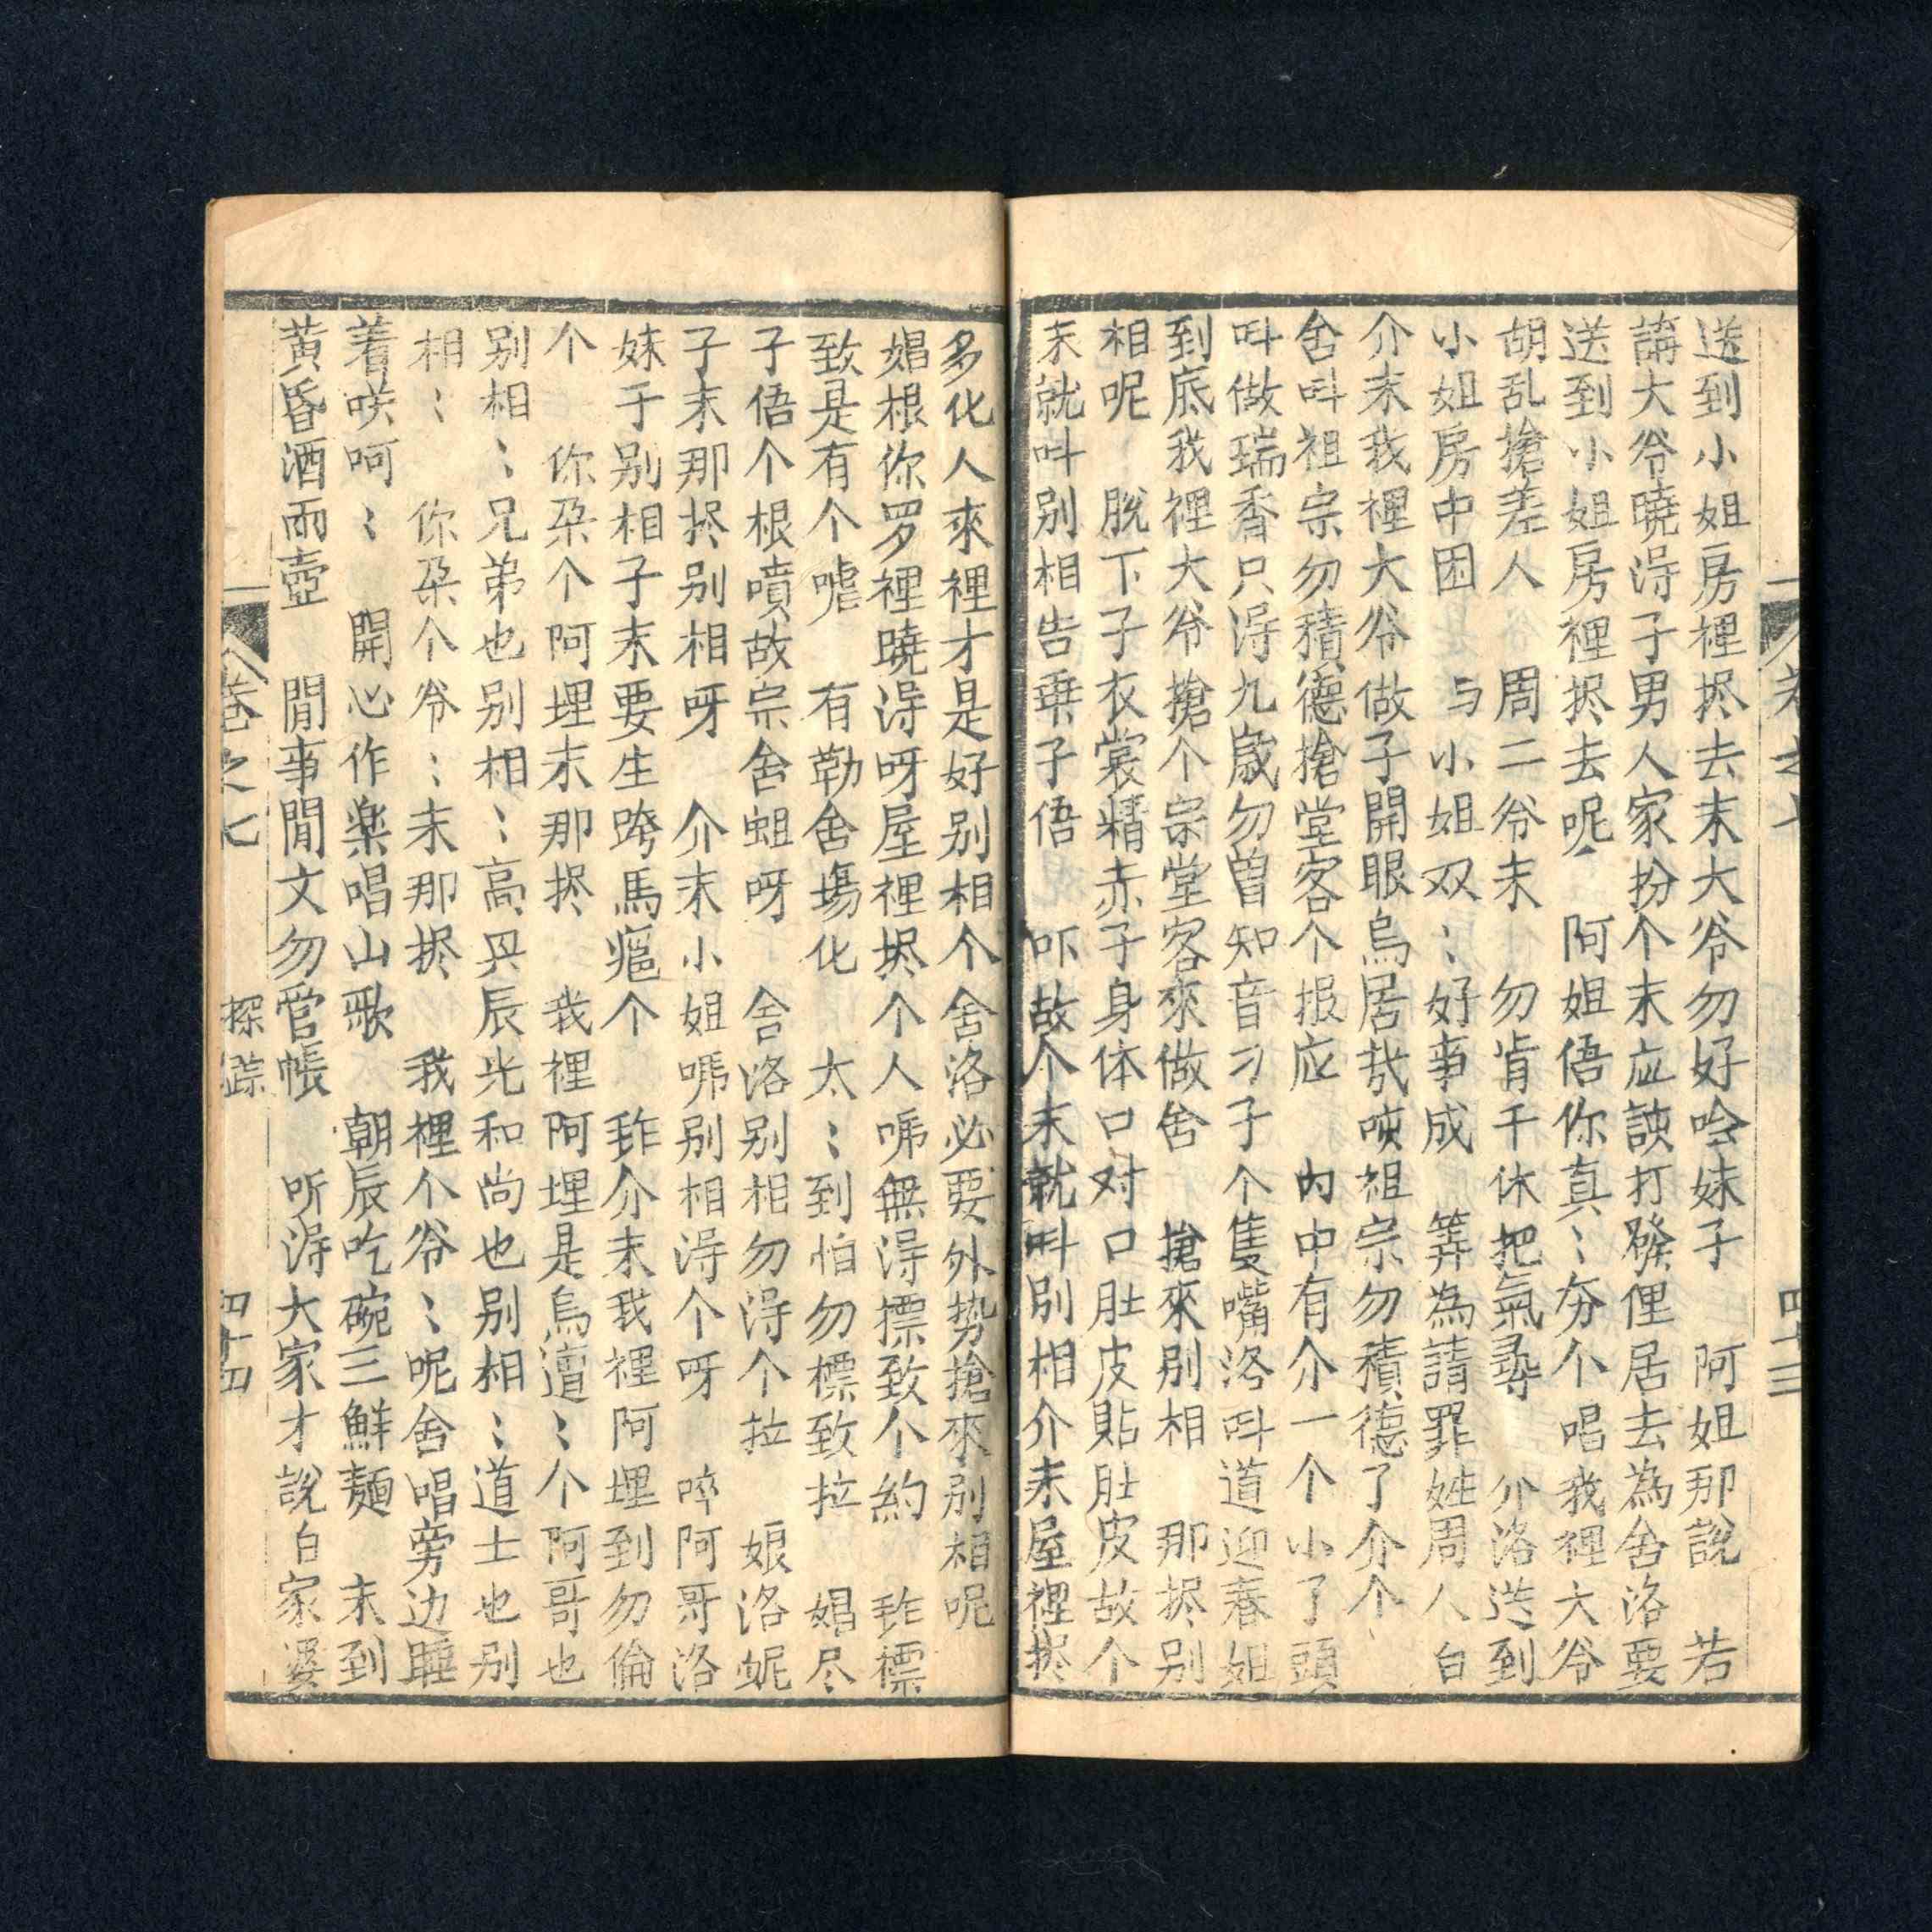 送到小姐房裡㧯去末大爷勿好吟妹子　阿姐那說　若
講大爷曉淂子男人家扮个末应諛打發俚居去為舍洛要
送到小姐房裡㧯去呢　阿姐俉你真〻夯个　唱我裡大爷
胡乱搶差人　周二爷末　勿肯干休把氣尋　介洛送到
小姐房中困　与小姐双〻好事成　筭為請罪姓周人　白
介末我裡大爷做子開眼烏居㢤　祖宗勿積德了介个
舍呌祖宗勿積德搶堂客个报应　內中有介一个小了頭
呌做瑞香只淂九歲勿曽知音刁子个隻嘴洛呌道迎春姐
到底我裡大爷搶个宗堂客來做舍　搶來别相　那㧯别
相呢　脫下子衣裳精赤子身体口对口肚皮貼肚皮故个
末就呌别相告乗子俉　吓故个末就呌别相介末屋裡㧯
卷之七　四十三
多化人來裡才是好别相个舍洛必要外势搶來别相呢
娼根你罗裡曉淂呀屋裡㧯个人嘑無淂摽致个約　𰵠標
致是有个嘘　有勒舍塲化　太〻到怕勿標致拉　娼尽
子俉个根噴故宗舍蛆呀　舍洛别相勿淂个拉　娘洛蚭
子末那㧯别相呀　介末小姐嘑别相淂个呀　啐阿哥洛
妹于别相子末要生跨馬瘟个　𰵠介末我裡阿埋到勿倫
个　你朶个阿埋末那㧯　我裡阿埋是烏澶〻个阿哥也
别相〻兄弟也别相〻高兴辰光和尚也别相〻道士也别
相〻　你朶个爷〻末那㧯　我裡个爷〻呢舍唱旁边睡
着咲呵〻　開心作楽唱山歌　朝辰吃碗三鮮麵　末到
黃昏酒兩壺　閒事閒文勿菅帳　听淂大家才說白家婆
卷之七　探踪　四十四